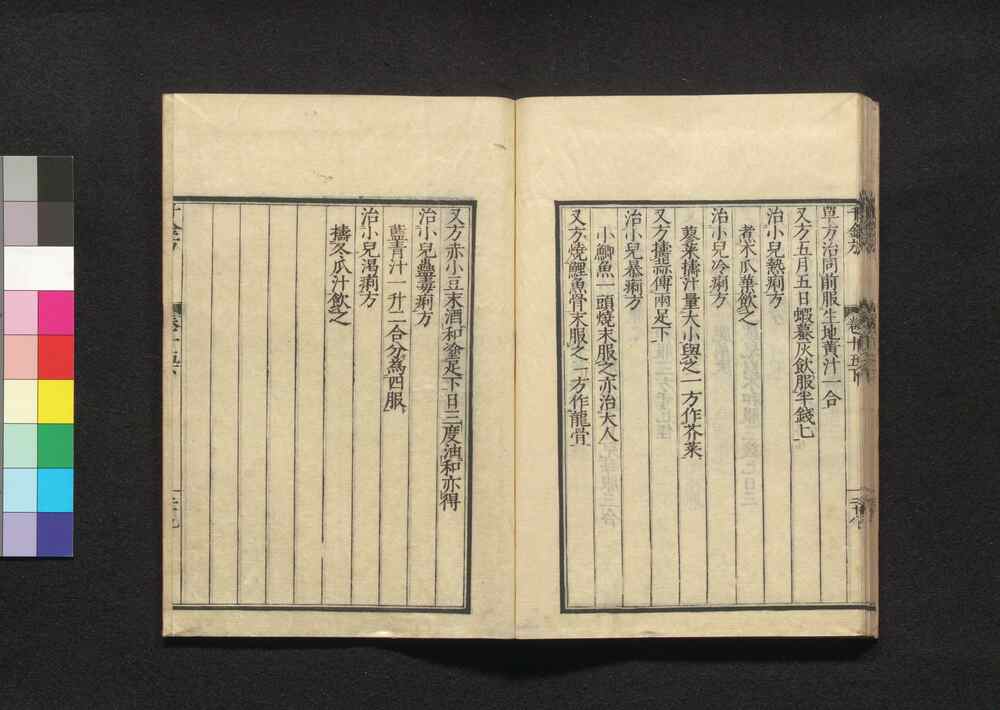 單方治同前服生地黃汁一合
又方五月五日蝦蟇灰飲服半錢匕
治小兒熱痢方
煮木瓜葉飲之
治小兒冷痢方
蓼菜擣汁量大小與之一方作芥菜
又方擣蒜傅兩足下
治小兒暴痢方
小鯽魚一頭燒末服之亦治大人
又方燒鯉魚骨末服之一方作龍骨
又方赤小豆末酒和塗足下日三度油和亦得
治小兒蠱毒痢方
藍青汁一升二合分為四服
治小兒渴痢方
擣冬瓜汁飲之